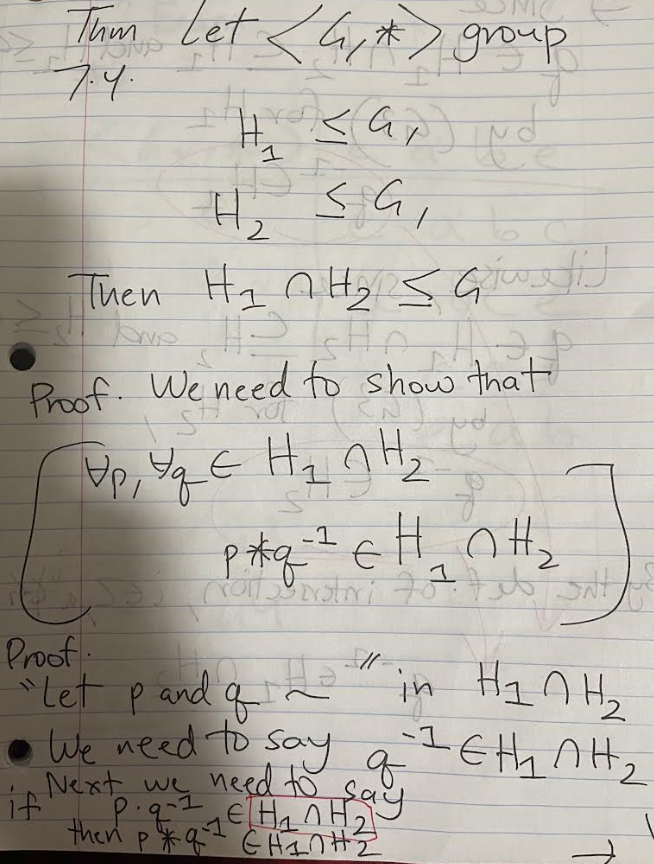 Thm Let <G,*> group
7.4.
H₁ ≤ G,
H₂ ≤ G,
Then H₁ ∩ H₂ ≤ G
Proof. We need to show that
∀p, ∀q ∈ H₁ ∩ H₂
p*q⁻¹ ∈ H₁ ∩ H₂
Proof.
"Let p and q ~" in H₁ ∩ H₂
• We need to say q⁻¹ ∈ H₁ ∩ H₂
Next we need to say
if p·q⁻¹ ∈ H₁ ∩ H₂
then p*q⁻¹ ∈ H₁ ∩ H₂
→